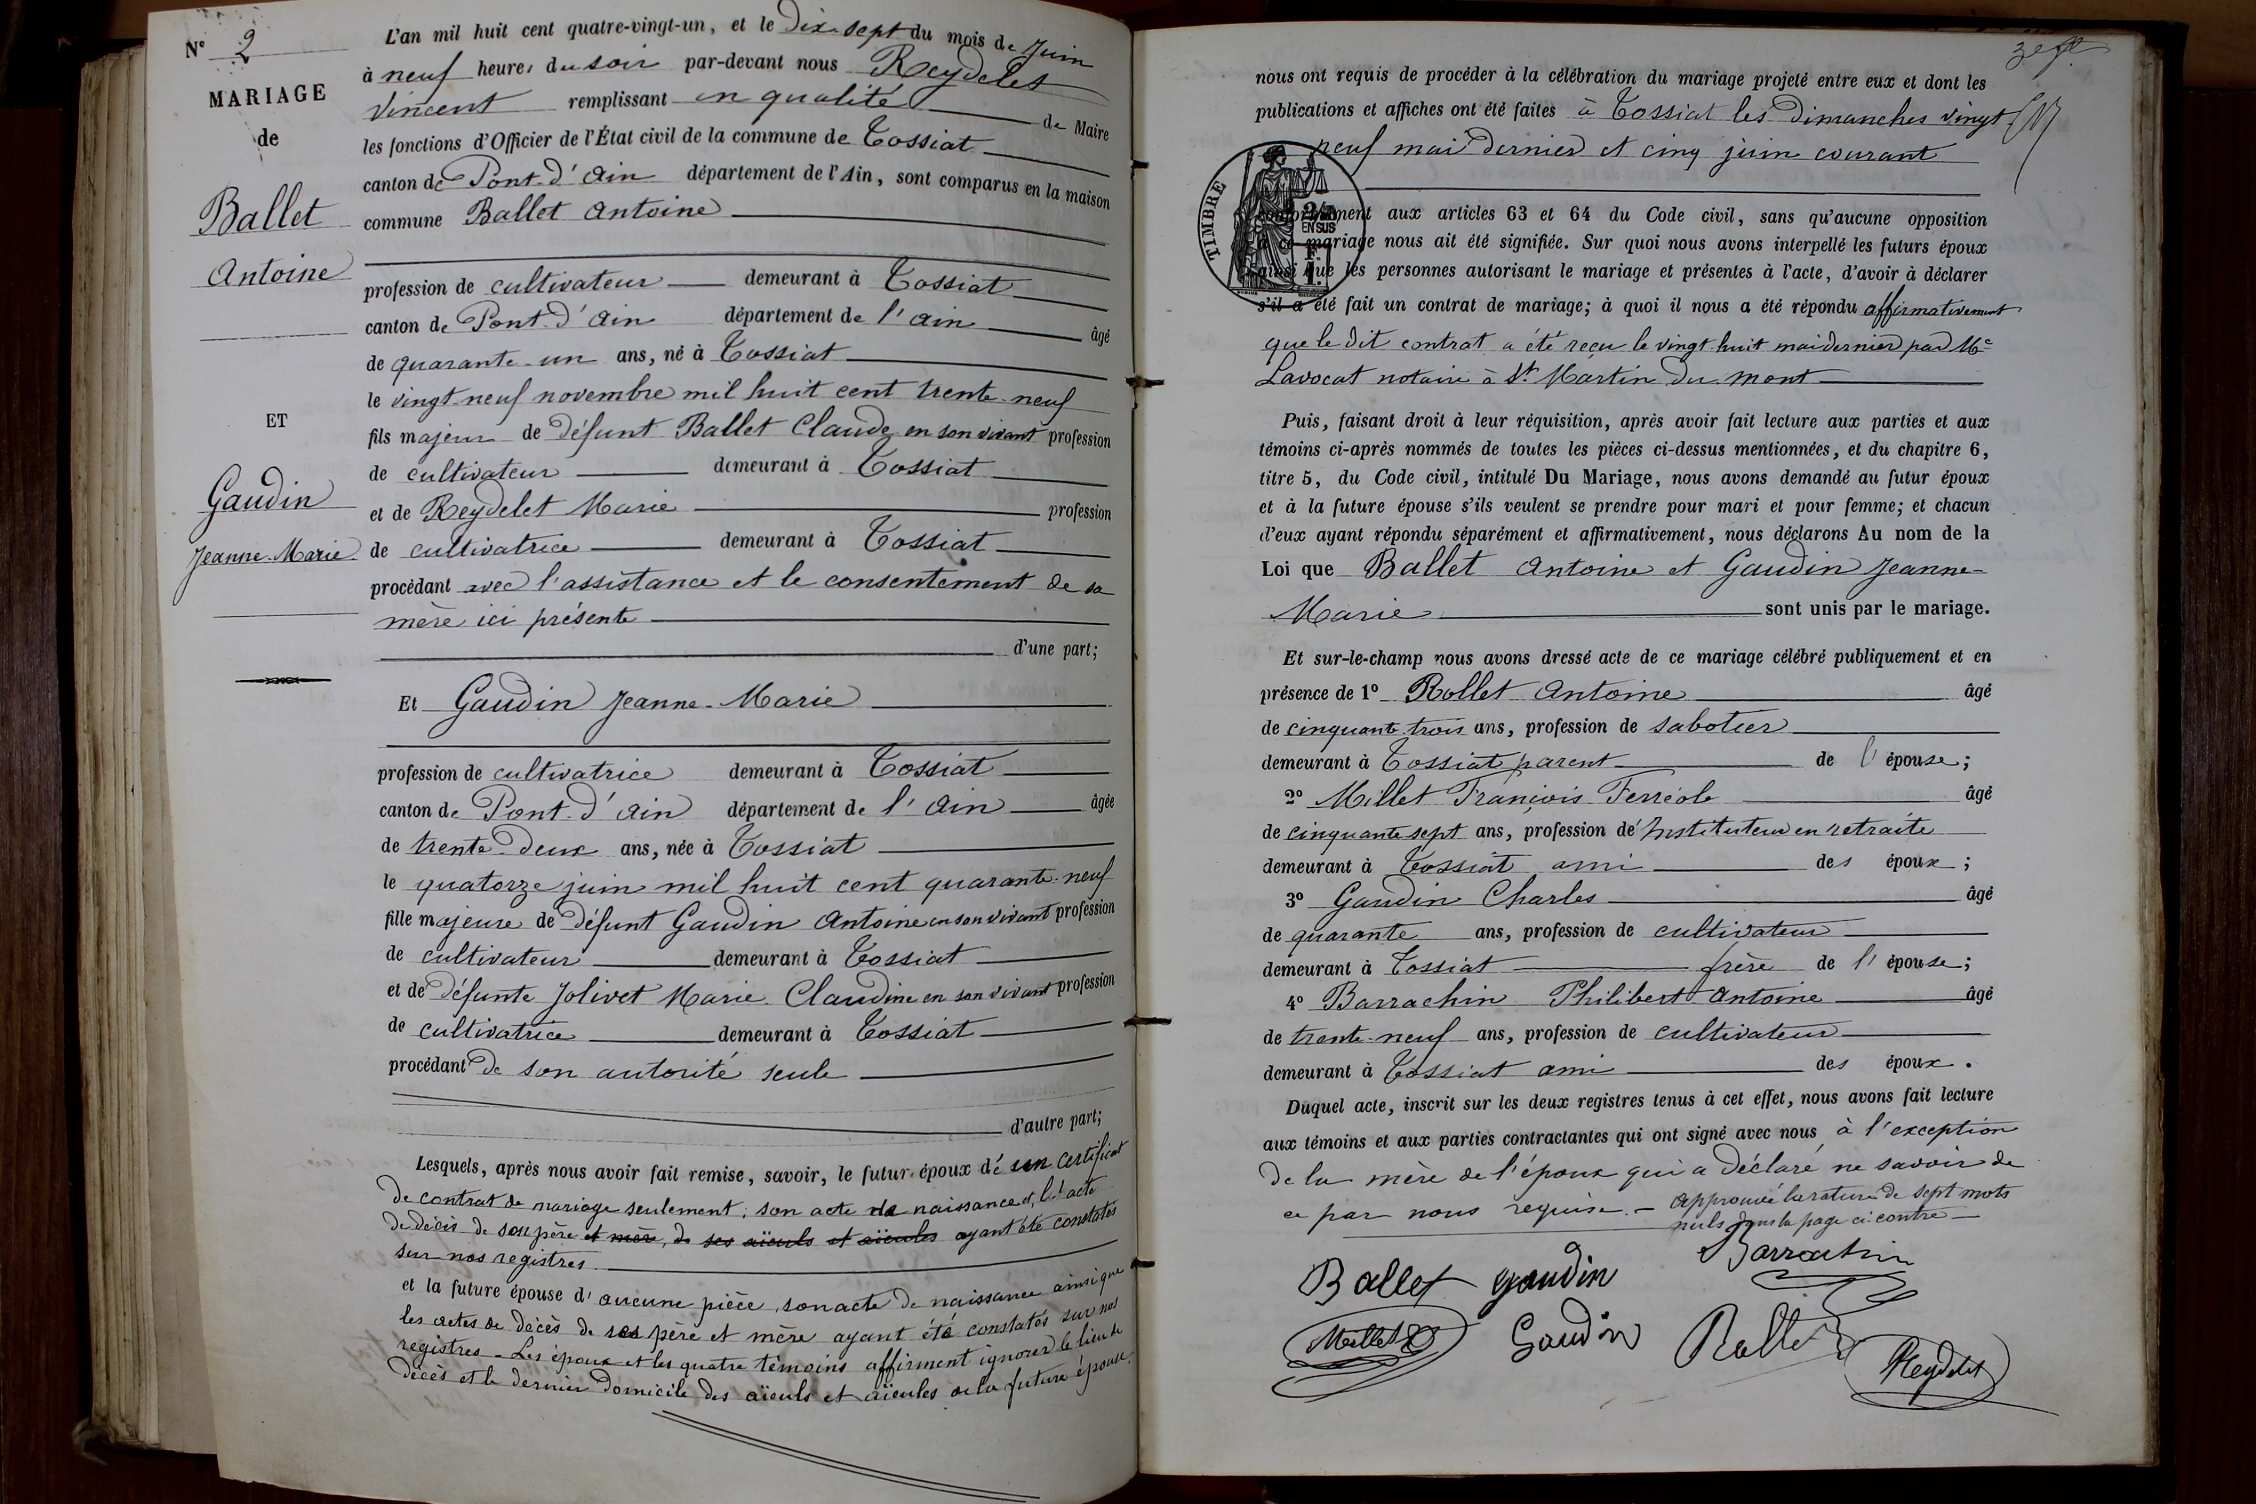 N° 2
MARIAGE
de
Ballet
Antoine
ET
Gaudin
Jeanne-Marie
L'an mil huit cent quatre-vingt-un, et le dix-sept du mois de Juin
à neuf heures du soir par-devant nous Reydelet
Vincent remplissant en qualité de Maire
les fonctions d'Officier de l'État civil de la commune de Tossiat
canton de Pont-d'Ain département de l'Ain, sont comparus en la maison
commune Ballet Antoine
profession de cultivateur demeurant à Tossiat
canton de Pont-d'Ain département de l'Ain âgé
de quarante-un ans, né à Tossiat
le vingt-neuf novembre mil huit cent trente-neuf
fils majeur de défunt Ballet Claude en son vivant profession
de cultivateur demeurant à Tossiat
et de Reydelet Marie profession
de cultivatrice demeurant à Tossiat
procédant avec l'assistance et le consentement de sa
mère ici présente
d'une part;
Et Gaudin Jeanne-Marie
profession de cultivatrice demeurant à Tossiat
canton de Pont-d'Ain département de l'Ain âgée
de trente-deux ans, née à Tossiat
le quatorze juin mil huit cent quarante-neuf
fille majeure de défunt Gaudin Antoine en son vivant profession
de cultivateur demeurant à Tossiat
et de défunte Jolivet Marie Claudine en son vivant profession
de cultivatrice demeurant à Tossiat
procédant de son autorité seule
d'autre part;
Lesquels, après nous avoir fait remise, savoir, le futur époux d'un certificat
de contrat de mariage seulement, son acte de naissance et l'acte
de décès de son père et mère, de ses aïeuls et aïeules ayant été constatés
sur nos registres.
et la future épouse d'aucune pièce, son acte de naissance ainsi que
les actes de décès de ses père et mère ayant été constatés sur nos
registres - Les époux et les quatre témoins affirment ignorer le lieu de
décès et le dernier domicile des aïeuls et aïeules de la future épouse.
nous ont requis de procéder à la célébration du mariage projeté entre eux et dont les
publications et affiches ont été faites à Tossiat les dimanches vingt-
neuf mai dernier et cinq juin courant
TIMBRE
2/10
EN SUS
F.
1.
conformément aux articles 63 et 64 du Code civil, sans qu'aucune opposition
à ce mariage nous ait été signifiée. Sur quoi nous avons interpellé les futurs époux
ainsi que les personnes autorisant le mariage et présentes à l'acte, d'avoir à déclarer
s'il a été fait un contrat de mariage; à quoi il nous a été répondu affirmativement
que le dit contrat a été reçu le vingt-huit mai dernier par Me
Lavocat notaire à St Martin du Mont
Puis, faisant droit à leur réquisition, après avoir fait lecture aux parties et aux
témoins ci-après nommés de toutes les pièces ci-dessus mentionnées, et du chapitre 6,
titre 5, du Code civil, intitulé Du Mariage, nous avons demandé au futur époux
et à la future épouse s'ils veulent se prendre pour mari et pour femme; et chacun
d'eux ayant répondu séparément et affirmativement, nous déclarons Au nom de la
Loi que Ballet Antoine et Gaudin Jeanne-
Marie sont unis par le mariage.
Et sur-le-champ nous avons dressé acte de ce mariage célébré publiquement et en
présence de 1° Rollet Antoine âgé
de cinquante-trois ans, profession de sabotier
demeurant à Tossiat parent de l'épouse;
2° Millet François Ferréole âgé
de cinquante sept ans, profession de Instituteur en retraite
demeurant à Tossiat ami des époux;
3° Gaudin Charles âgé
de quarante ans, profession de cultivateur
demeurant à Tossiat frère de l'épouse;
4° Barrachin Philibert Antoine âgé
de trente-neuf ans, profession de cultivateur
demeurant à Tossiat ami des époux.
Duquel acte, inscrit sur les deux registres tenus à cet effet, nous avons fait lecture
aux témoins et aux parties contractantes qui ont signé avec nous à l'exception
de la mère de l'époux qui a déclaré ne savoir de
ce par nous requise. - Approuvé la rature de sept mots
nuls dans la page ci-contre -
Ballet gaudin Barrachin
Millet Gaudin Rollet Reydelet